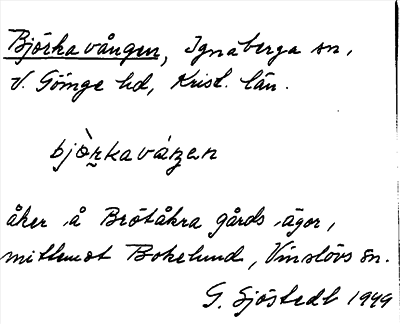 Björkavången, Ignaberga sn,
V. Göinge hd, Krist. län.
bjò̰rkaváŋen
åker å Brötåkra gårds ägor,
mittemot Bokelund, Vinslövs sn.
G. Sjöstedt 1949